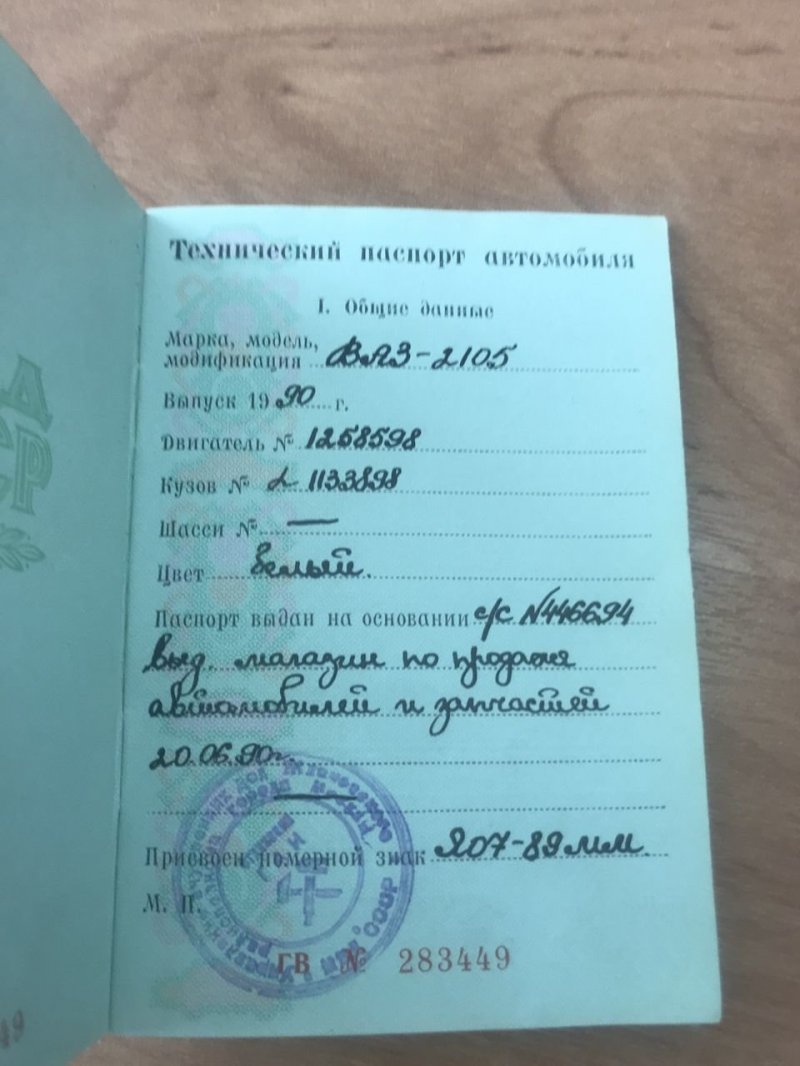 Технический паспорт автомобиля
1. Общие данные
Марка, модель,
модификация ВАЗ-2105
Выпуск 19 90 г.
Двигатель № 1258598
Кузов № 1133898
Шасси № —
Цвет белый.
Паспорт выдан на основании с/с N446694
выд. магазин по продаже
автомобилей и запчастей
20.06.90г.
Присвоен номерной знак 207-89 мм.
М. П.
ГВ № 283449